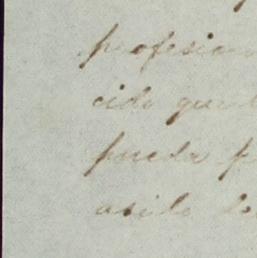 profesion
cido que
pueda p
asilo